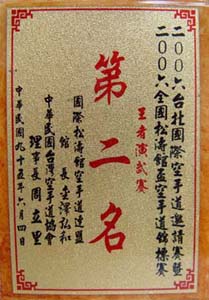 二００六台北國際空手道邀請賽暨
二００六全國松濤館盃空手道錦標賽
王者演武賽
第二名
國際松濤館空手道連盟
館長金澤弘和
中華民國台灣空手道協會
理事長周立里
中華民國九十五年六月四日